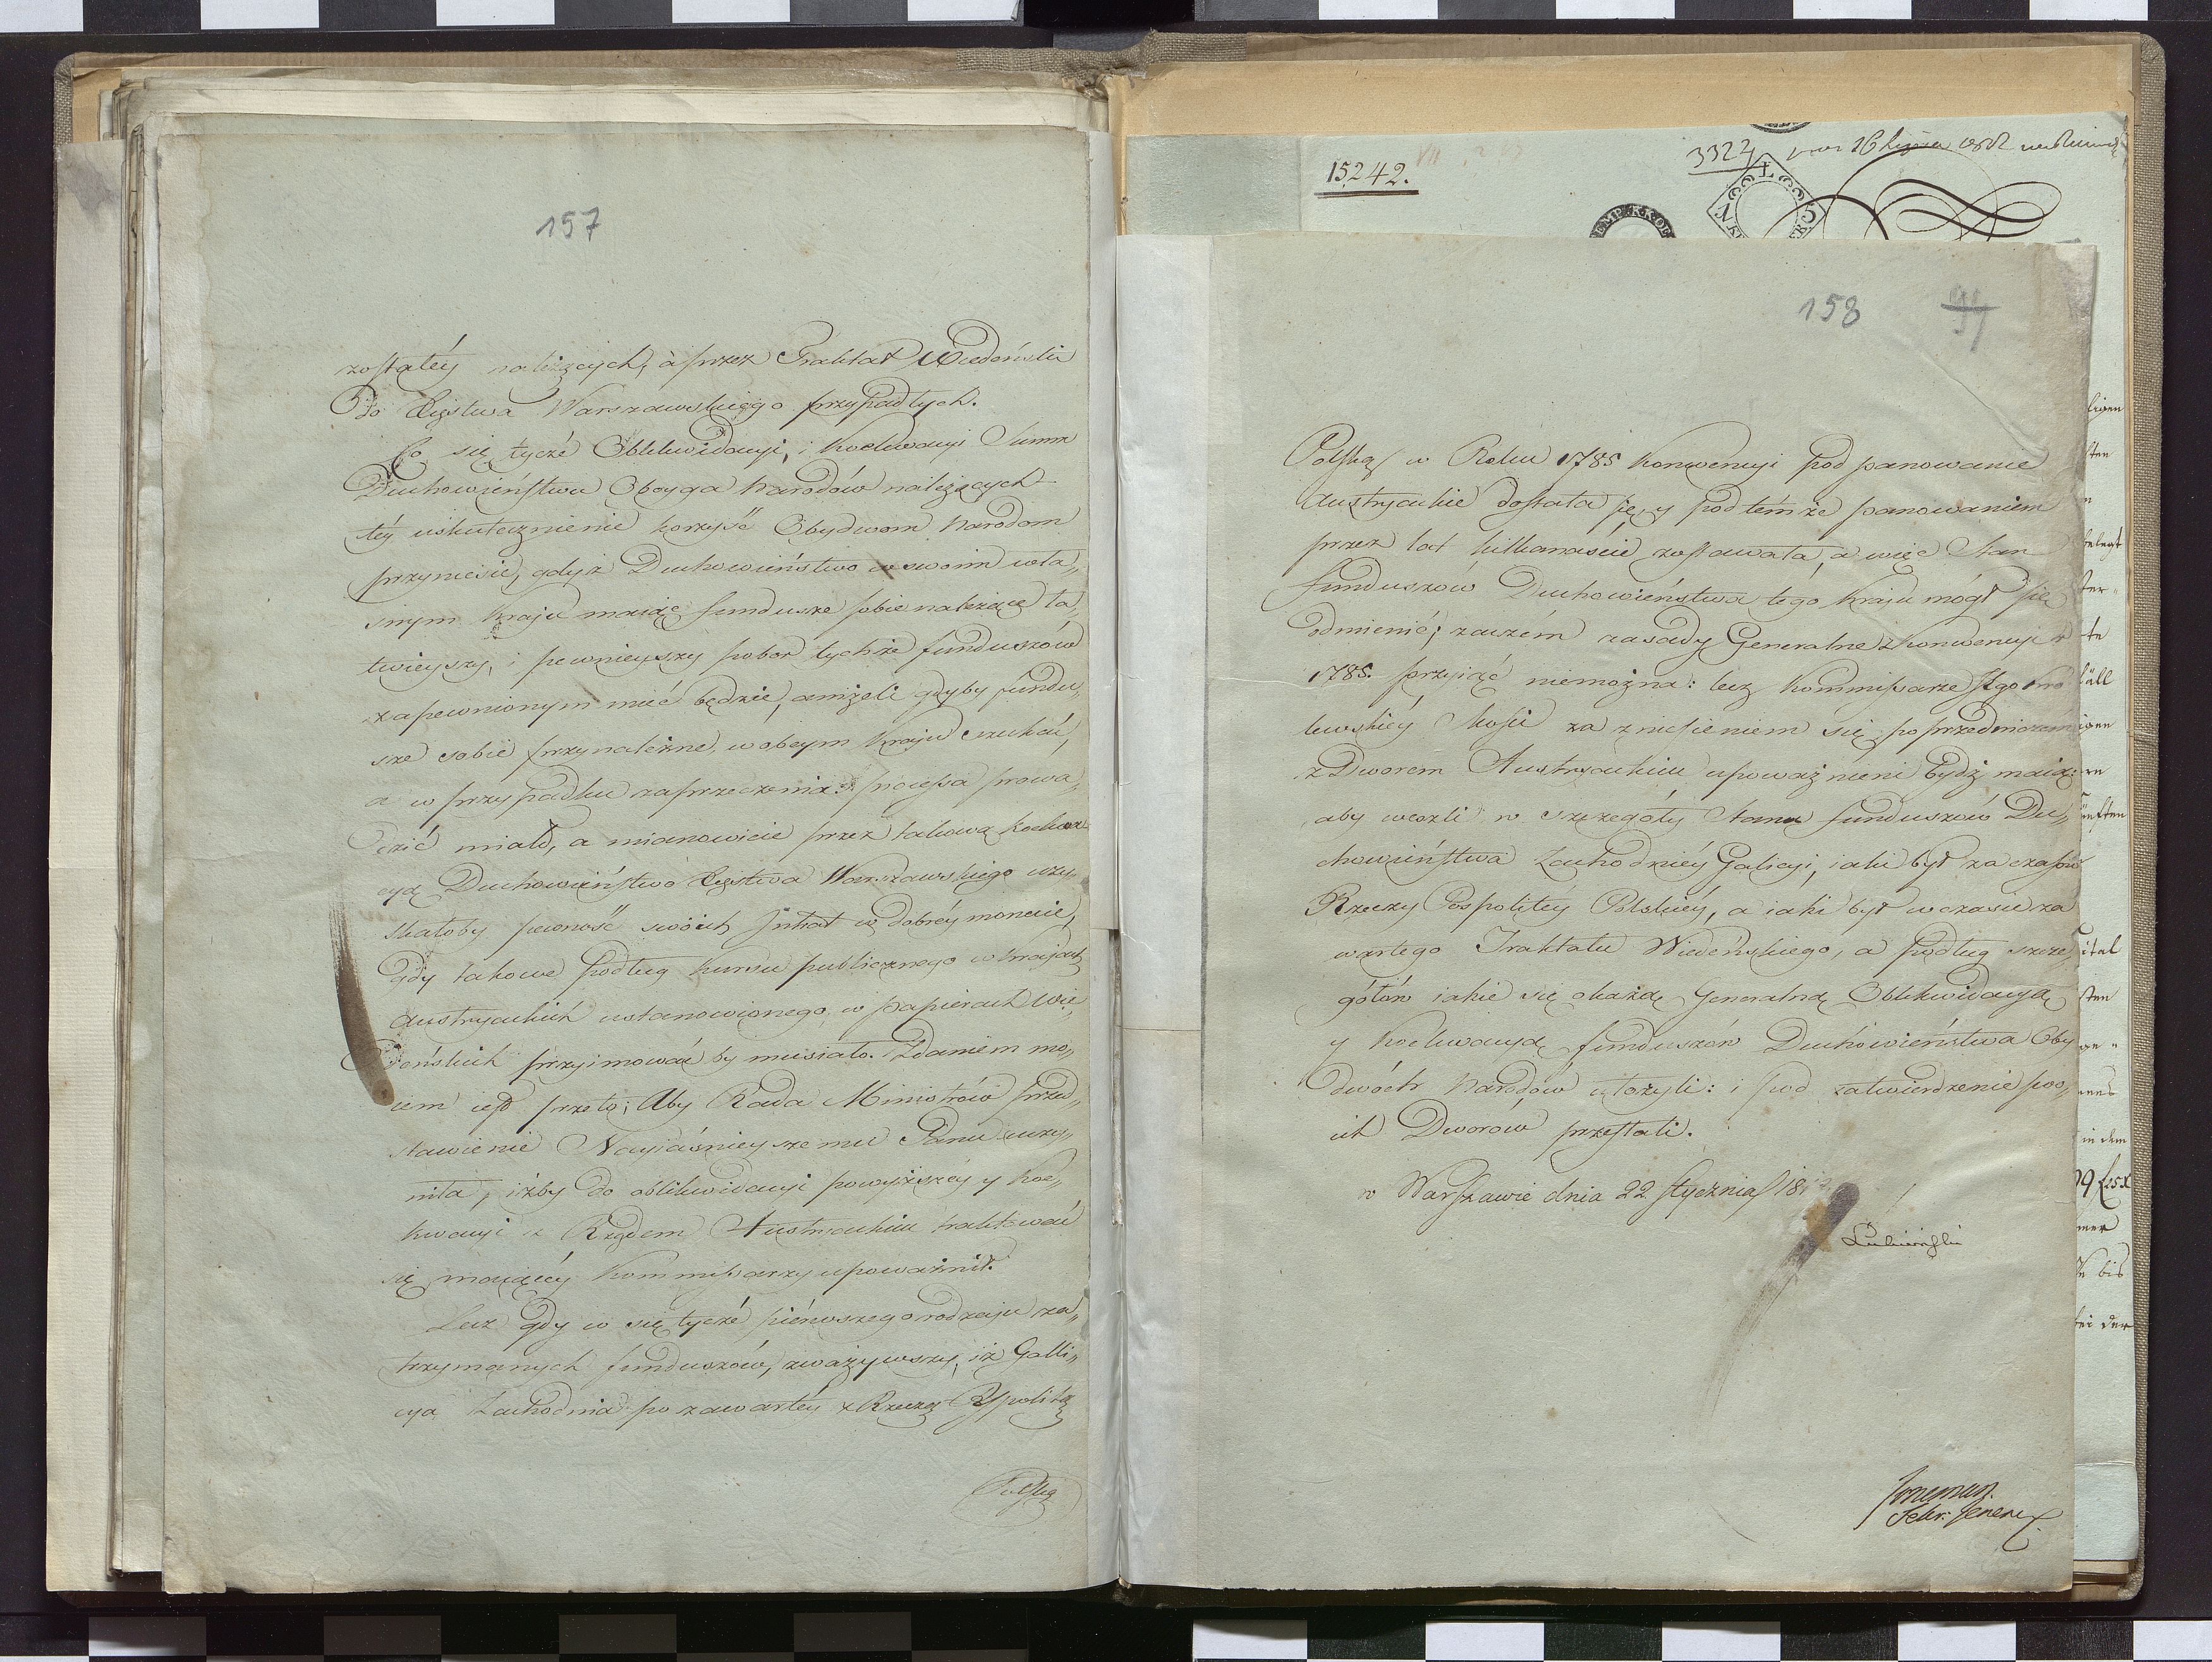 157
zostałéy należących, à przez Traktat Wiedeński
Do Xięstwa Warszawskiégo przypadłych.
Co się tycze Oblikwidacyi, i Koekwacyi Summ
Duchowieństwu Oboyga Narodów należących
téy uskutecznienie korzyść Obydwom Narodom
przyniesie, gdyż Duchowieństwo w swoim wła„
snym Kraju maiąc fundusze sobie należące ła„
twieyszy, i pewnieyszy pobor tychże funduszów
zapewnionym mieć będzie, aniżeli gdyby fundu„
sze sobie przynależne, w obcym Kraju szukać,
a w przypadku zaprzeczenia processa prowa„
dzić miało, a mianowicie przez takową koekwa„
cyą Duchowieństwo Xięstwa Warszawskiego uzy„
skałoby pewność swoich Intrat w dobréy monecie,
Gdy takowe podług kursu publicznego w Krajach
Austryackich ustanowionego, w papierach Wie„
deńskich przyimować by musiało. Zdaniem mo„
iem iest przeto; Aby Rada Ministrów przed„
stawienie Nayiaśnieyszemu Panu uczy„
niła, iżby do oblikwidacyi powyższéy y Koe„
kwacyi z Rządem Austriackim traktować
się maiącéy Kommissarzy upoważnił.
Lecz gdy co się tycze piérwszego rodzaju za„
trzymanych funduszów, zważywszy, iż Galli„
cya Zachodnia po zawartéy z Rzeczą Pospolitą
Polską
15242.
3322
EMP. K.K. OE
158
94
Polską w Roku 1785 Konwencyi pod panowanie
Austryackie dostała się, y pod témże panowaniem
przez lat kilkanaście zostawała, a więc Stan
funduszów Duchowieństwa tégo Kraju mógł się
odmienić; zaczém zasady Generalne z konwencyi
1785. przyiąć niemożna: lecz Kommissarze Jego Kró
lewskiéy Mości za zniesieniem się poprzedniczem
z Dworem Austryackim upoważnieni bydź maią:
aby weszli w szczegóły Stanu funduszów Du„
chowieństwa Zachodniéy Galicyi, iaki był za czasów
Rzeczy Pospolitéy Polskiéy, a iaki był w czasie za
wartego Traktatu Wiedeńskiego, a podług szcze„
gółów iakie się okażą Generalną Oblikwidacyą
y Koekwacyą funduszów Duchowieństwa Oby
dwóch Narodów ułożyli: i pod zatwierdzenie swo„
ich Dworów przesłali.
w Warszawie dnia 22 Stycznia 181
Łubieński
Sekr: Jener